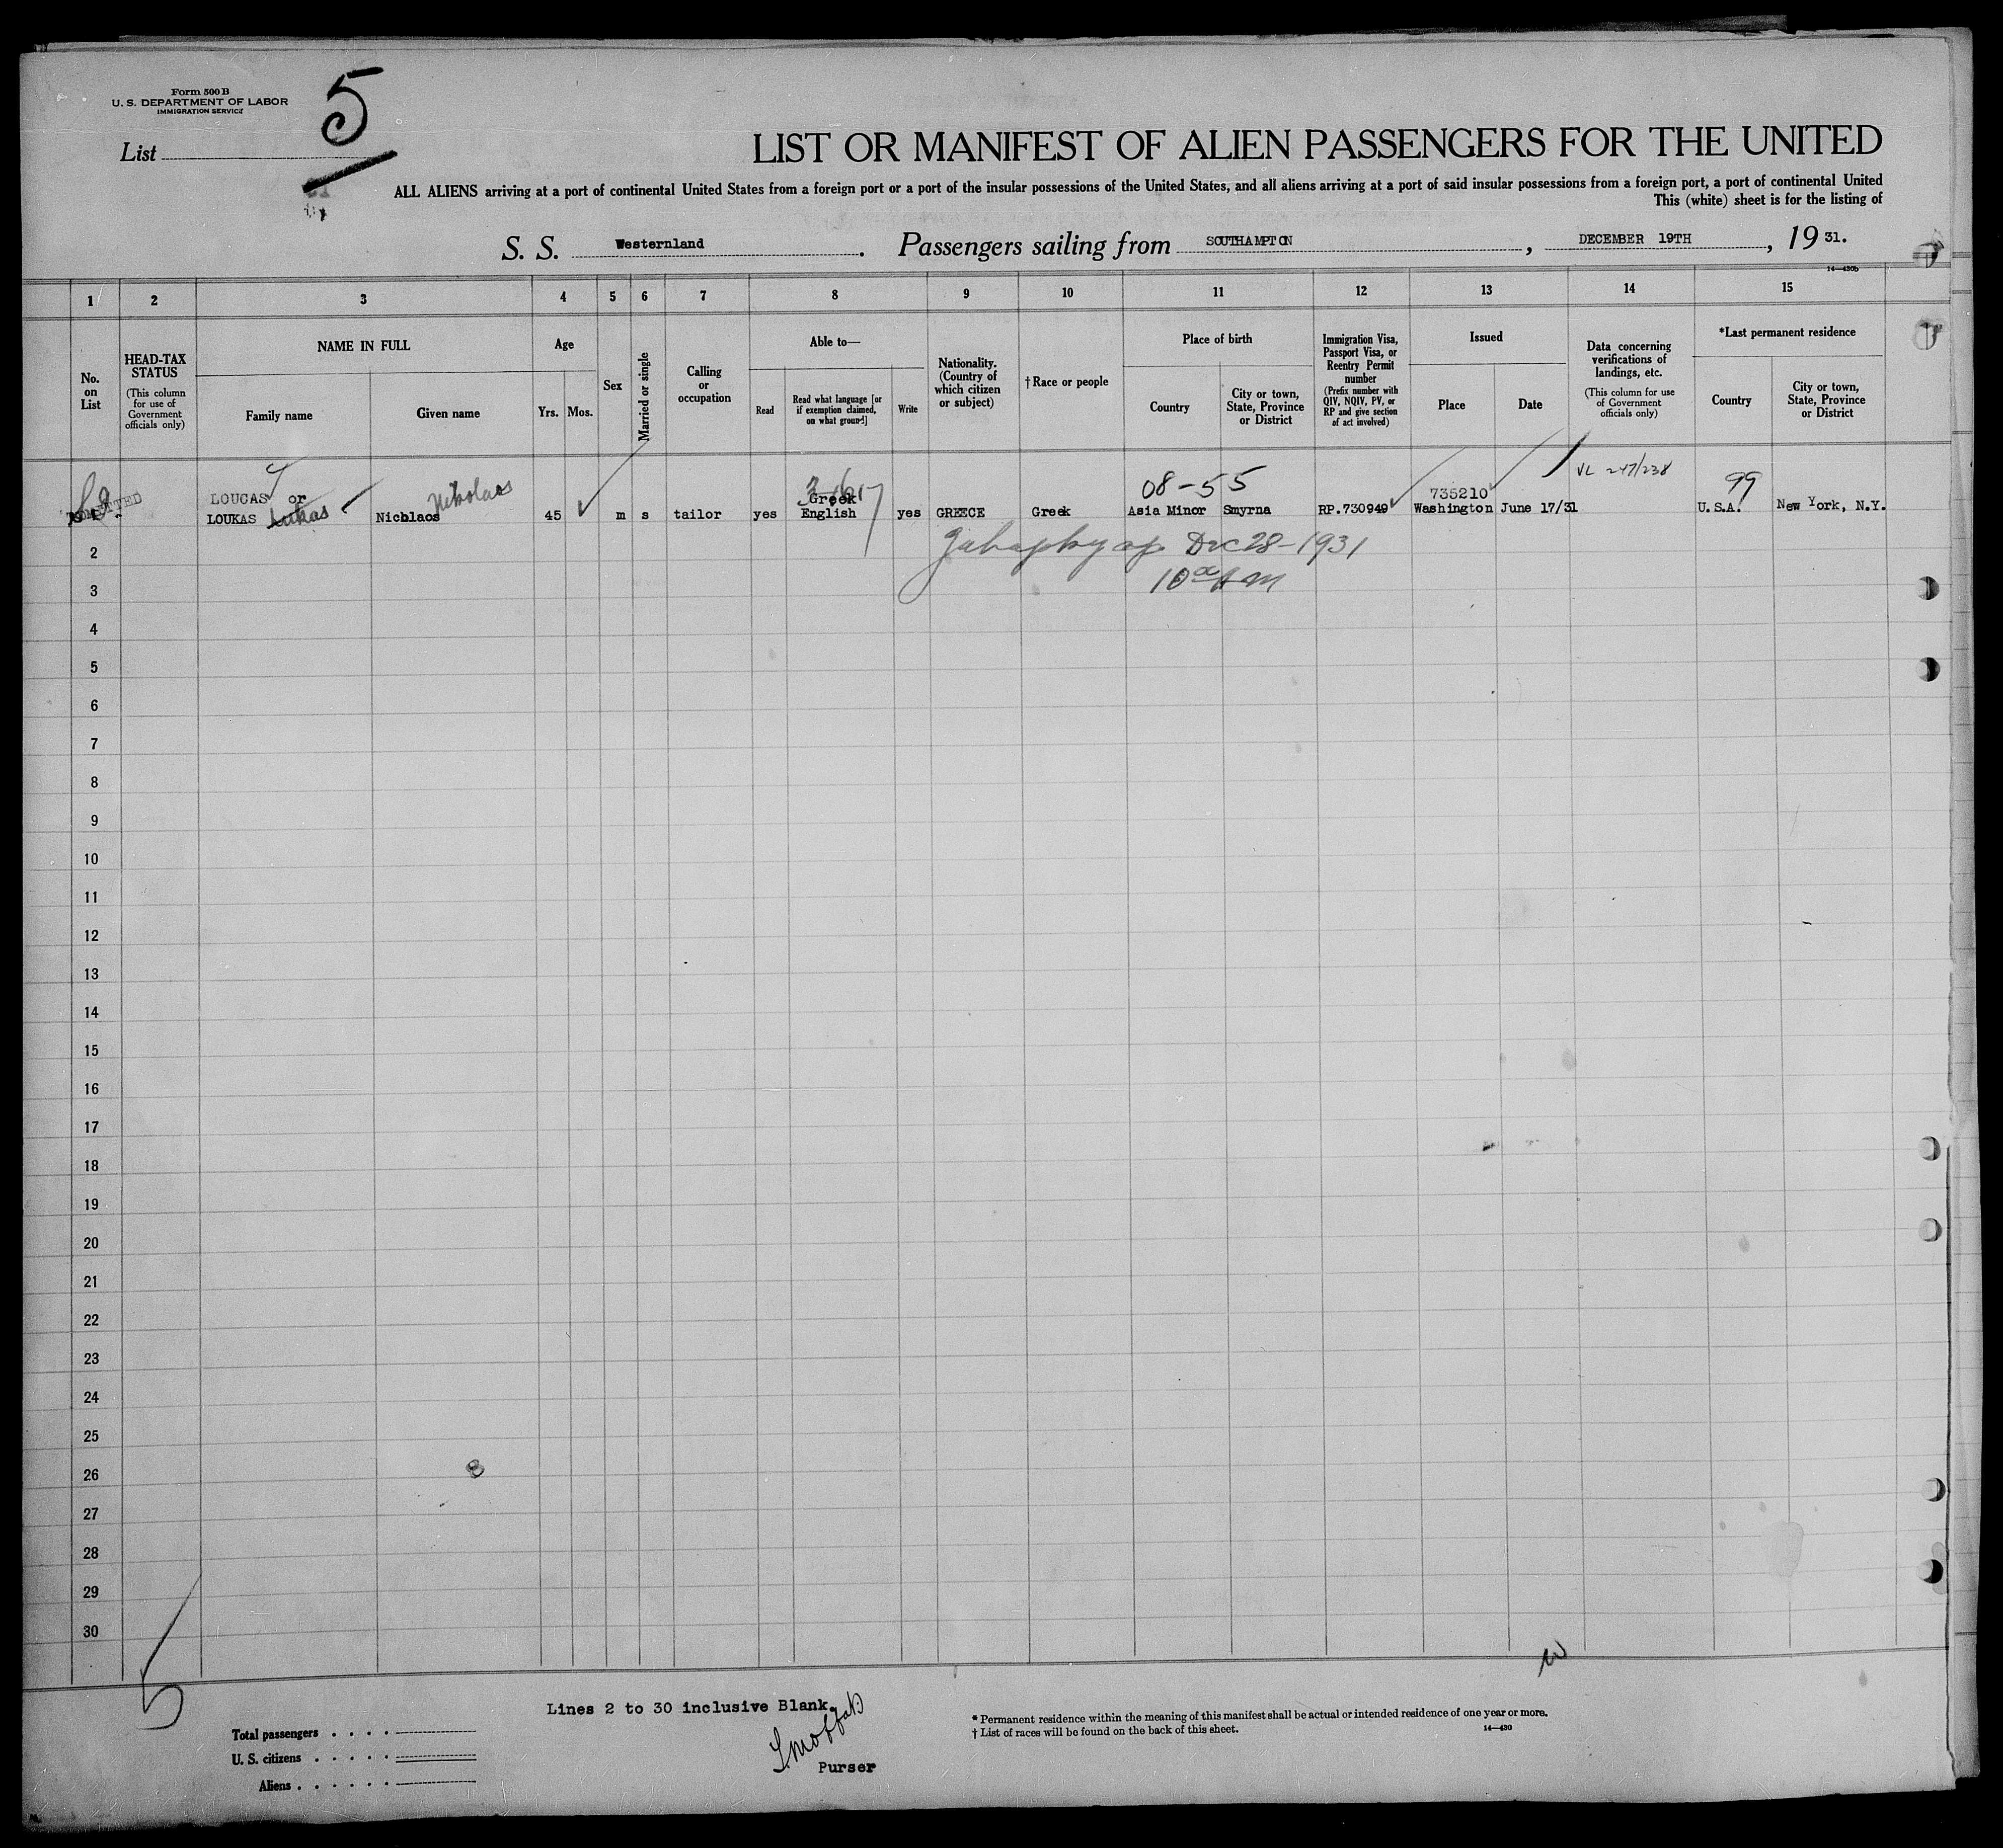 Form 500 B
U. S. DEPARTMENT OF LABOR
IMMIGRATION SERVICE
List 5
LIST OR MANIFEST OF ALIEN PASSENGERS FOR THE UNITED
ALL ALIENS arriving at a port of continental United States from a foreign port or a port of the insular possessions of the United States, and all aliens arriving at a port of said insular possessions from a foreign port, a port of continental United
This (white) sheet is for the listing of
S. S. Westernland. Passengers sailing from SOUTHAMPTON, DECEMBER 19TH, 19 31.
14—430b
1 2 3 4 5 6 7 8 9 10 11 12 13 14 15
No. on List
HEAD-TAX STATUS (This column for use of Government officials only)
NAME IN FULL
Family name
Given name
Age
Yrs. Mos.
Sex
Married or single
Calling or occupation
Able to—
Read
Read what language [or if exemption claimed, on what ground]
Write
Nationality. (Country of which citizen or subject)
†Race or people
Place of birth
Country
City or town, State, Province or District
Immigration Visa, Passport Visa, or Reentry Permit number (Prefix number with QIV, NQIV, PV, or RP and give section of act involved)
Issued
Place
Date
Data concerning verifications of landings, etc. (This column for use of Government officials only)
*Last permanent residence
Country
City or town, State, Province or District
VL 247/238
08-55
99
LOUCAS or Nikolaos Greek 735210
LOUKAS Lukas Nicolaos 45 m s tailor yes English yes GREECE Greek Asia Minor Smyrna RP.730949 Washington June 17/31 U.S.A. New York, N.Y.
2 Dec 28-1931
3 10 00 AM
4
5
6
7
8
9
10
11
12
13
14
15
16
17
18
19
20
21
22
23
24
25
26
27
28
29
30
5
Lines 2 to 30 inclusive Blank.
Purser
Total passengers . . . .
U. S. citizens . . . . .
Aliens . . . . . .
* Permanent residence within the meaning of this manifest shall be actual or intended residence of one year or more.
† List of races will be found on the back of this sheet.
14—430